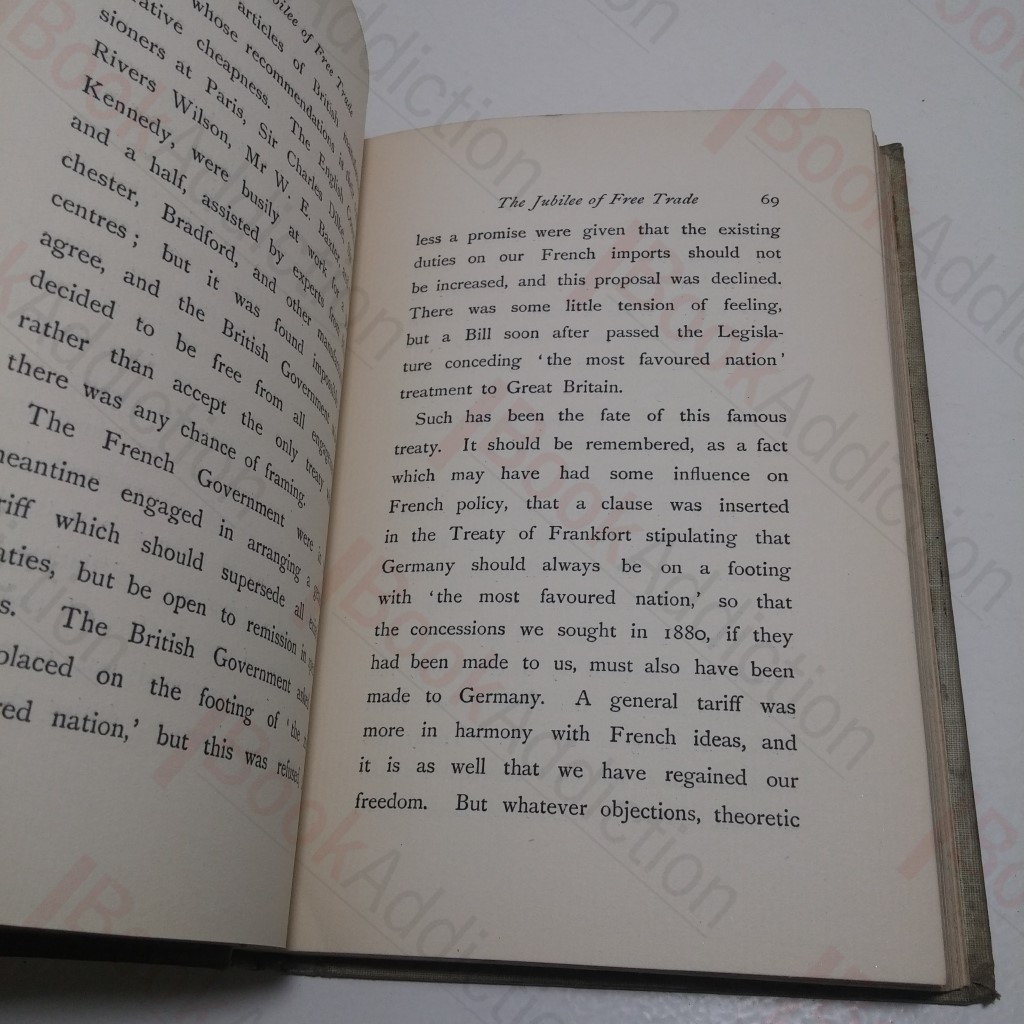 bilee of Free Trade
articles of British
whose recommendations in
rative cheapness. The English
sioners at Paris, Sir Charles Dilke,
Rivers Wilson, Mr W. E. Baxter, and
Kennedy, were busily at work for a
and a half, assisted by experts from
chester, Bradford, and other
centres; but it was found
agree, and the British Government
decided to be free from all
rather than accept the only treaty
there was any chance of framing.
The French Government were
meantime engaged in arranging a
riff which should supersede all
aties, but be open to remission in
s. The British Government
placed on the footing of 'the
red nation,' but this was refused,
The Jubilee of Free Trade 69
less a promise were given that the existing
duties on our French imports should not
be increased, and this proposal was declined.
There was some little tension of feeling,
but a Bill soon after passed the Legisla-
ture conceding 'the most favoured nation'
treatment to Great Britain.
Such has been the fate of this famous
treaty. It should be remembered, as a fact
which may have had some influence on
French policy, that a clause was inserted
in the Treaty of Frankfort stipulating that
Germany should always be on a footing
with 'the most favoured nation,' so that
the concessions we sought in 1880, if they
had been made to us, must also have been
made to Germany. A general tariff was
more in harmony with French ideas, and
it is as well that we have regained our
freedom. But whatever objections, theoretic
BookAddiction